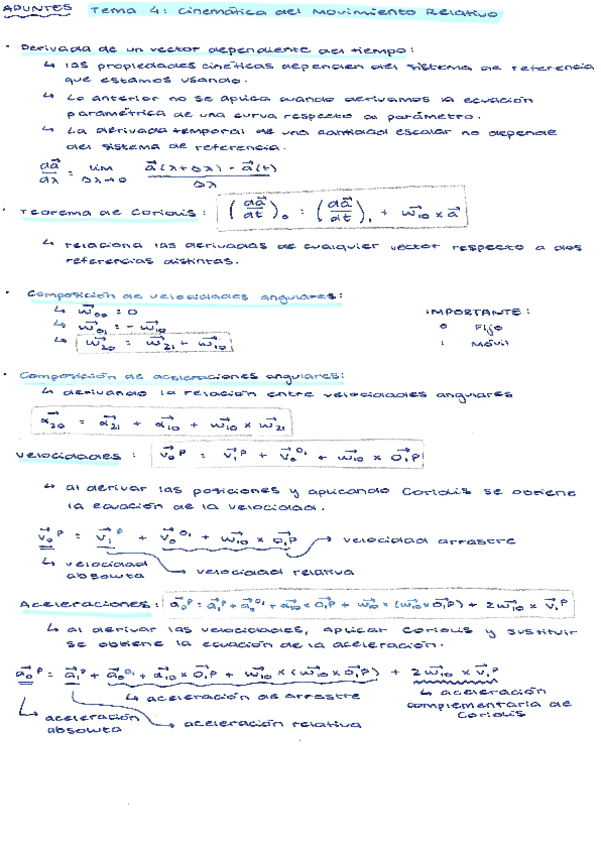 APUNTES Tema 4: Cinemática del Movimiento Relativo
· Derivada de un vector dependiente del tiempo:
↳ las propiedades cinéticas dependen del sistema de referencia
que estamos usando.
↳ Lo anterior no se aplica cuando derivamos la ecuación
paramétrica de una curva respecto al parámetro.
↳ La derivada temporal de una cantidad escalar no depende
del sistema de referencia.
da⃗/dλ = lim Δλ→0 (a⃗(λ+Δλ) - a⃗(t))/Δλ
· Teorema de Coriolis: (da⃗/dt)₀ = (da⃗/dt)₁ + ω⃗₁₀ × a⃗
↳ relaciona las derivadas de cualquier vector respecto a dos
referencias distintas.
· Composición de velocidades angulares:
↳ ω⃗₀₀ = 0
↳ ω⃗₀₁ = - ω⃗₁₀
↳ ω⃗₂₀ = ω⃗₂₁ + ω⃗₁₀
IMPORTANTE:
0 Fijo
1 Móvil
· Composición de aceleraciones angulares:
↳ derivando la relación entre velocidades angulares
α⃗₂₀ = α⃗₂₁ + α⃗₁₀ + ω⃗₁₀ × ω⃗₂₁
Velocidades: v⃗₀ᴾ = v⃗₁ᴾ + v⃗₀^O₁ + ω⃗₁₀ × O₁P⃗
↳ al derivar las posiciones y aplicando Coriolis se obtiene
la ecuación de la velocidad.
v⃗₀ᴾ = v⃗₁ᴾ + v⃗₀^O₁ + ω⃗₁₀ × O₁P⃗ → velocidad arrastre
↳ velocidad
absoluta
→ velocidad relativa
Aceleraciones: a⃗₀ᴾ = a⃗₁ᴾ + a⃗₀^O₁ + α⃗₁₀ × O₁P⃗ + ω⃗₁₀ × (ω⃗₁₀ × O₁P⃗) + 2ω⃗₁₀ × v⃗₁ᴾ
↳ al derivar las velocidades, aplicar Coriolis y sustituir
se obtiene la ecuación de la aceleración.
a⃗₀ᴾ = a⃗₁ᴾ + a⃗₀^O₁ + α⃗₁₀ × O₁P⃗ + ω⃗₁₀ × (ω⃗₁₀ × O₁P⃗) + 2ω⃗₁₀ × v⃗₁ᴾ
↳ aceleración de arrastre
↳ aceleración
complementaria de
Coriolis
→ aceleración
absoluta
→ aceleración relativa